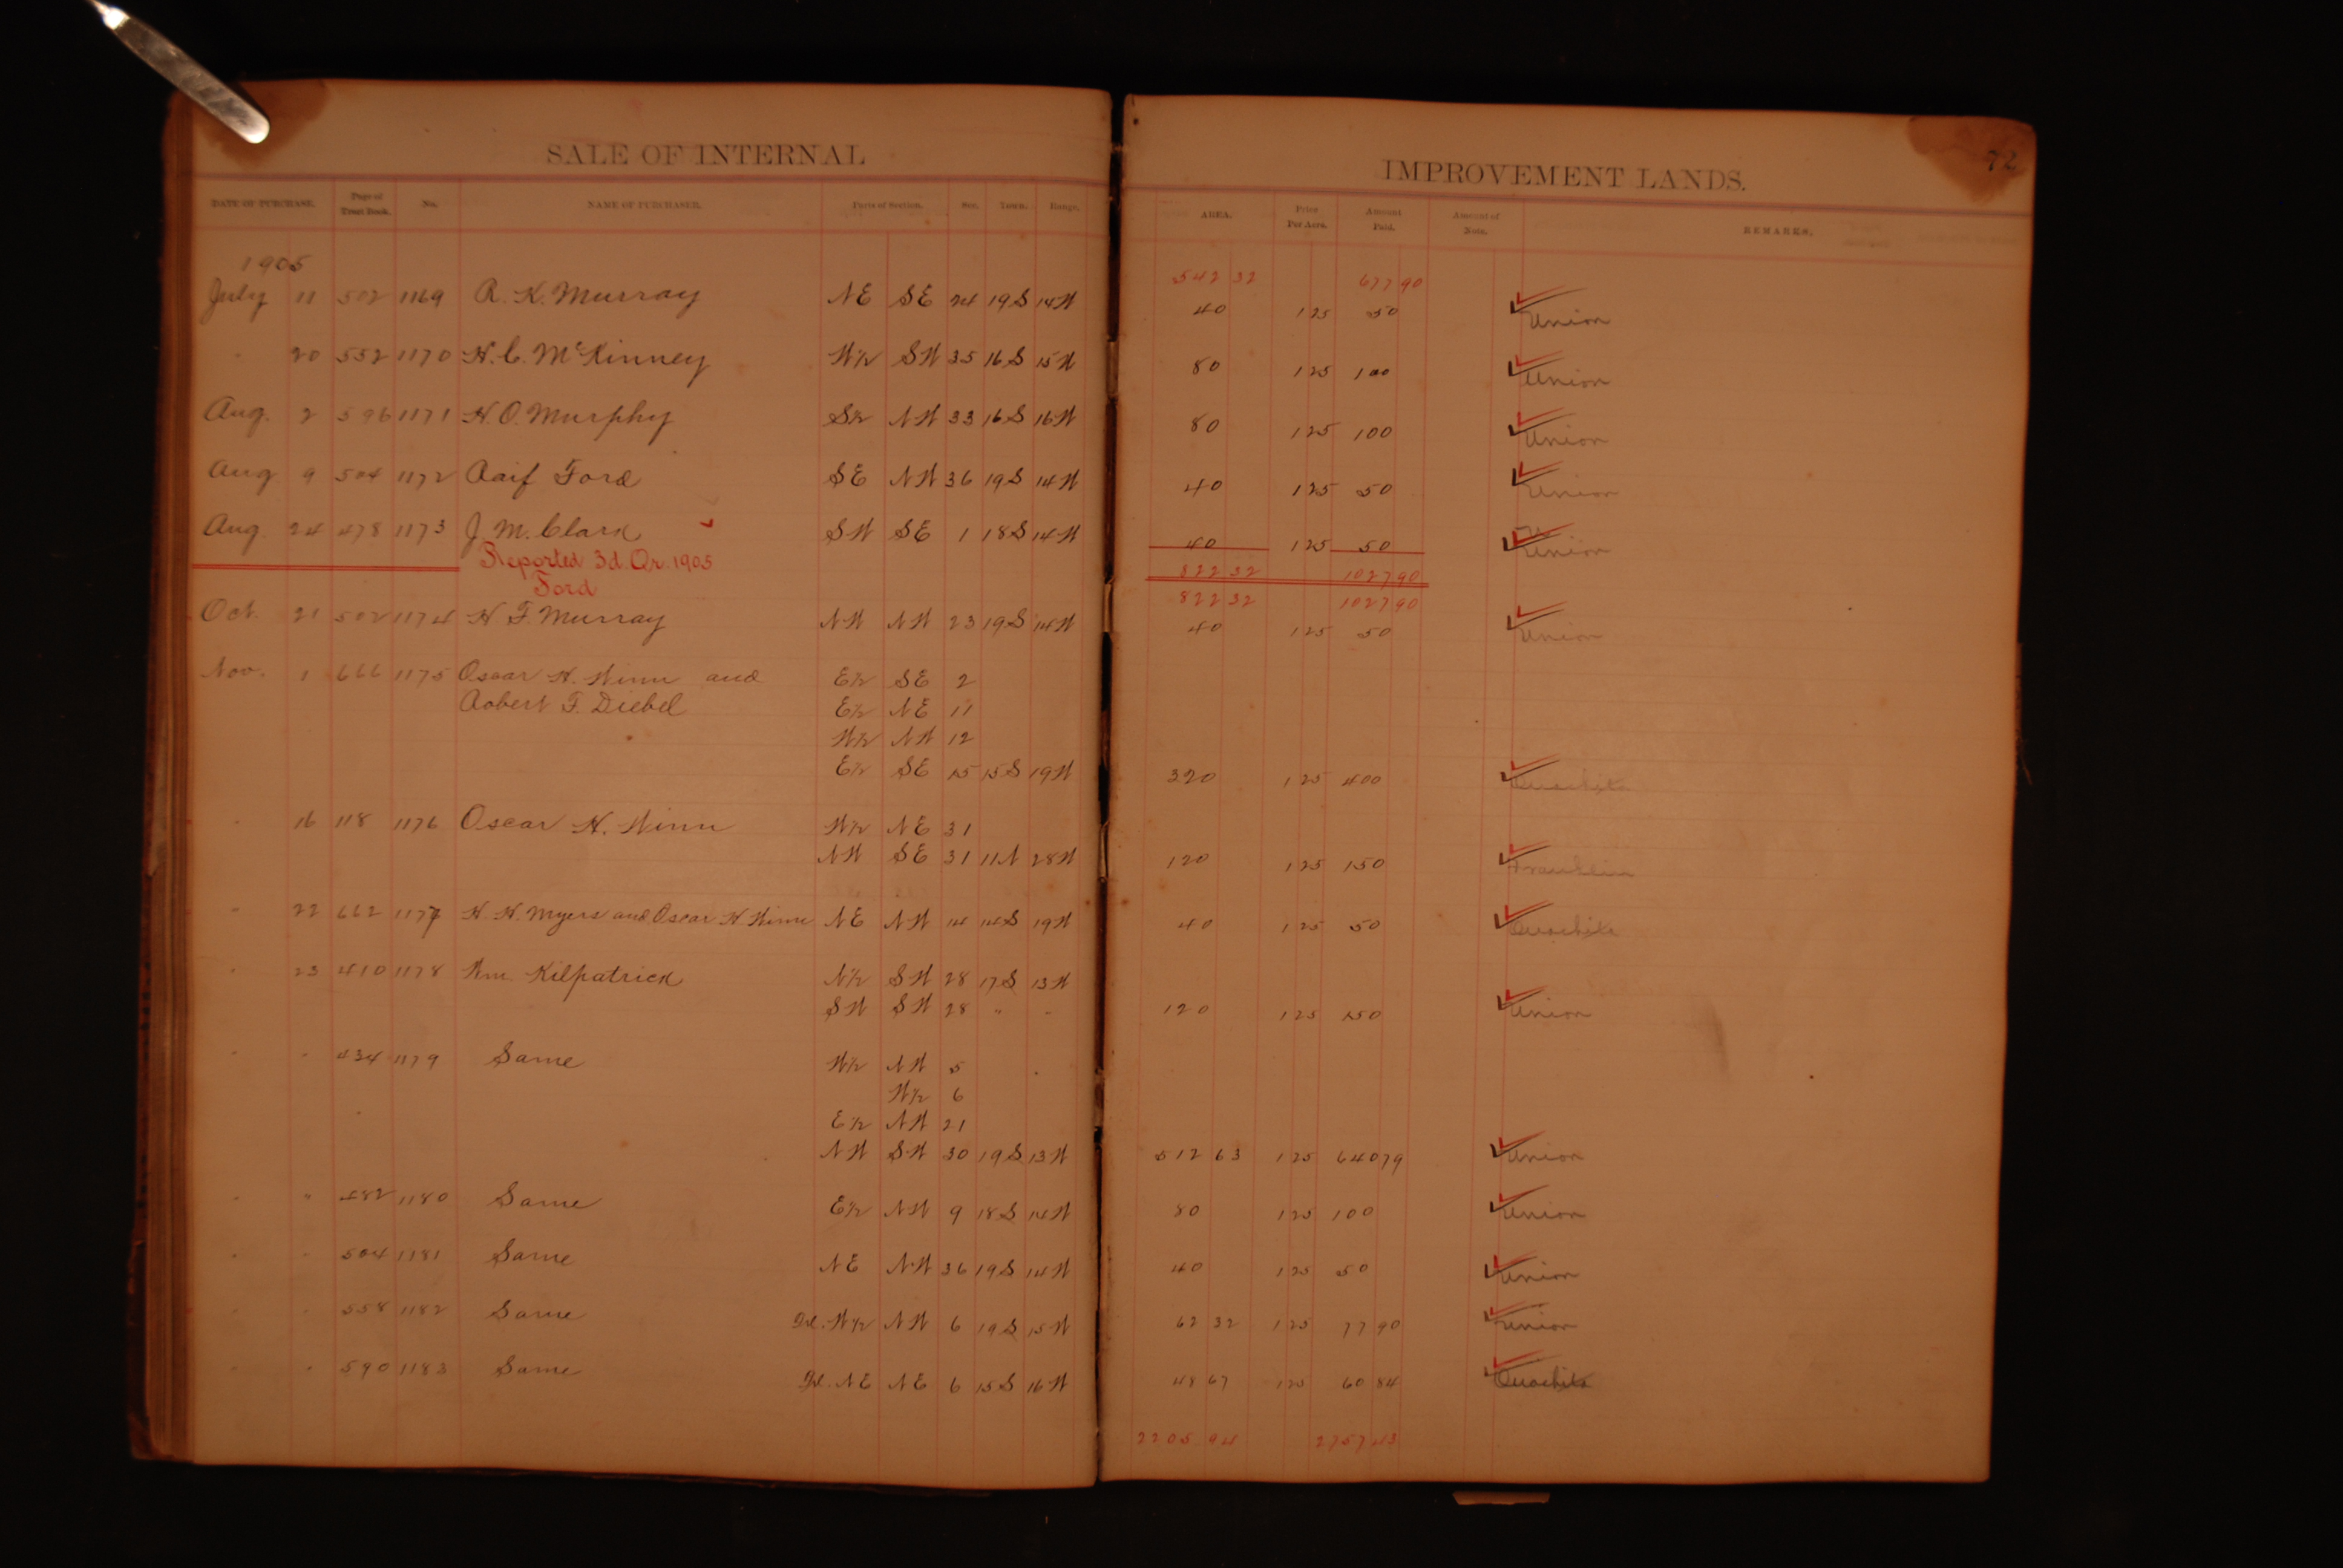 SALE OF INTERNAL IMPROVEMENT LANDS.
72
DATE OF PURCHASE. Page of Tract Book. No. NAME OF PURCHASER. Parts of Section. Sec. Town. Range. AREA. Price Per Acre. Amount Paid. Amount of Note. REMARKS.
1905 542 32 677 90
July 11 502 1169 R. K. Murray NE SE 24 19S 14W 40 125 50 Union
" 20 552 1170 H. C. McKinney W½ SW 35 16S 15W 80 125 100 Union
Aug. 2 596 1171 W. O. Murphy S½ NW 33 16S 16W 80 125 100 Union
Aug 9 504 1172 Raif Ford SE NW 36 19S 14W 40 125 50 Union
Aug. 24 478 1173 J. M. Clark SW SE 1 18S 14W 40 125 50 Union
Reported 3d. Qr. 1905 822 32 1027 90
Ford 822 32 1027 90
Oct. 21 502 1174 W F. Murray NW NW 23 19S 14W 40 125 50 Union
Nov. 1 666 1175 Oscar H. Winn and E½ SE 2
Robert F. Diebel E½ NE 11
W½ NW 12
E½ SE 15 15S 19W 320 125 400 Ouachita
" 16 118 1176 Oscar H. Winn W½ NE 31
NW SE 31 11N 28W 120 125 150 Franklin
" 22 662 1177 H. H. Myers and Oscar H Winn NE NW 14 14S 19W 40 125 50 Ouachita
" 23 410 1178 Wm. Kilpatrick N½ SW 28 17S 13W
SW SW 28 " " 120 125 150 Union
" " 434 1179 Same W½ NW 5
W½ 6
E½ NW 21
NW SW 30 19S 13W 512 63 125 640 79 Union
" " 482 1180 Same E½ NW 9 18S 14W 80 125 100 Union
" " 504 1181 Same NE NW 36 19S 14W 40 125 50 Union
" " 558 1182 Same W½ NW 6 19S 15W 62 32 125 77 90 Union
" " 590 1183 Same NE NE 6 15S 16W 48 67 125 60 84 Ouachita
2205 94 2757 43